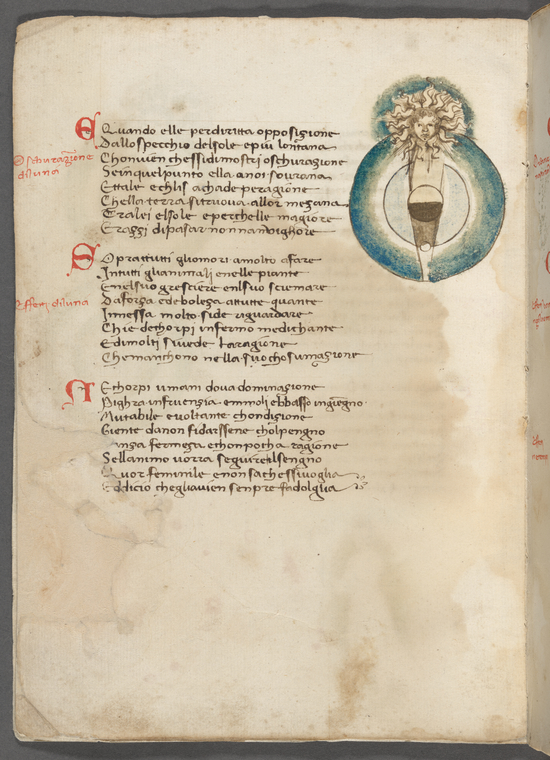 E Quando elle perdiritta opposizione
Dallo specchio delsole epiu lontana
Chonuien chessidimostri oschurazione
Seinquelpunto ella anoi sourana
Ettale echlis achade peragione
Chella terra sitruoua allor mezana
Tralei elsole eperchelle magiore
Erazzi dipasar nonnanuighore
oschurazione
diluna
S Oprattutti gliomori amolto afare
Intutti glianimali enelle piante
Enelsuo gresciere enlsuo sciemare
Daforza edeboleza attutte quante
Innessa molto side riguardare
Chi e dechorpi infermo medichante
Edimolti siuede laragione
Chemanchono nella suochosumazione
Effetti diluna
N Echorpi umani doua dominazione
Pighra infruenzia emmoli ebbasso ingiegno
Mutabile euoltante chondizione
Giente danon fidarssene cholpengno
sanza fermeza echonpocha ragione
Sellanimo uorra seguire elsengno
Quor feminile enonsachessiuoglia
Eddicio chegliauien senpre sadolglia